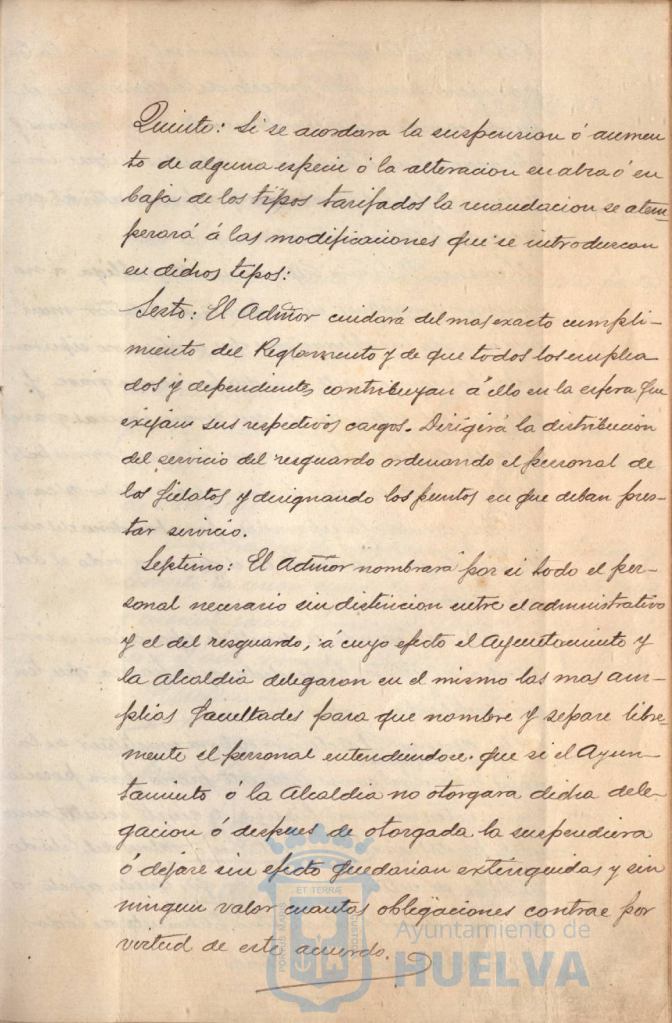 Quinto: Si se acordara la suspension ó aumen
to de alguna especie ó la alteracion en alza ó en
baja de los tipos tarifados la recaudacion se atem-
perará á las modificaciones que se introduzcan
en dichos tipos:
Sesto: El Admor cuidará del mas exacto cumpli-
miento del Reglamento y de que todos los emplea
dos y dependientes contribuyan á ello en la esfera que
exijan sus respectivos cargos. Dirigirá la distribucion
del servicio del resguardo ordenando el personal de
los fielatos y designando los puntos en que deban pres-
tar servicio.
Septimo: El Admor nombrará por si todo el per-
sonal necesario sin distincion entre el administrativo
y el del resguardo, á cuyo efecto el Ayuntamiento y
la Alcaldia delegaron en el mismo las mas am-
plias facultades para que nombre y separe libre-
mente el personal entendiendose que si el Ayun-
tamiento ó la Alcaldia no otorgara dicha dele-
gacion ó despues de otorgada la suspendiera
ó dejare sin efecto quedarian extinguidas y sin
ningun valor cuantas obligaciones contrae por
virtud de este acuerdo.
ET TERRÆ
PORTUS MARIS
CUSTODIA
Ayuntamiento de
HUELVA